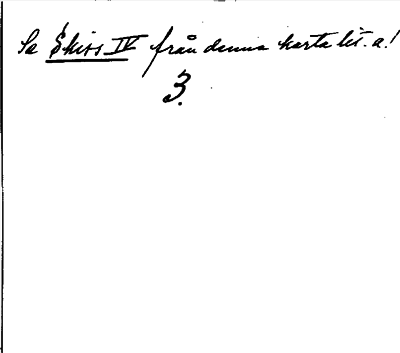 Se Skiss IV från denna karta lit. a!
3.